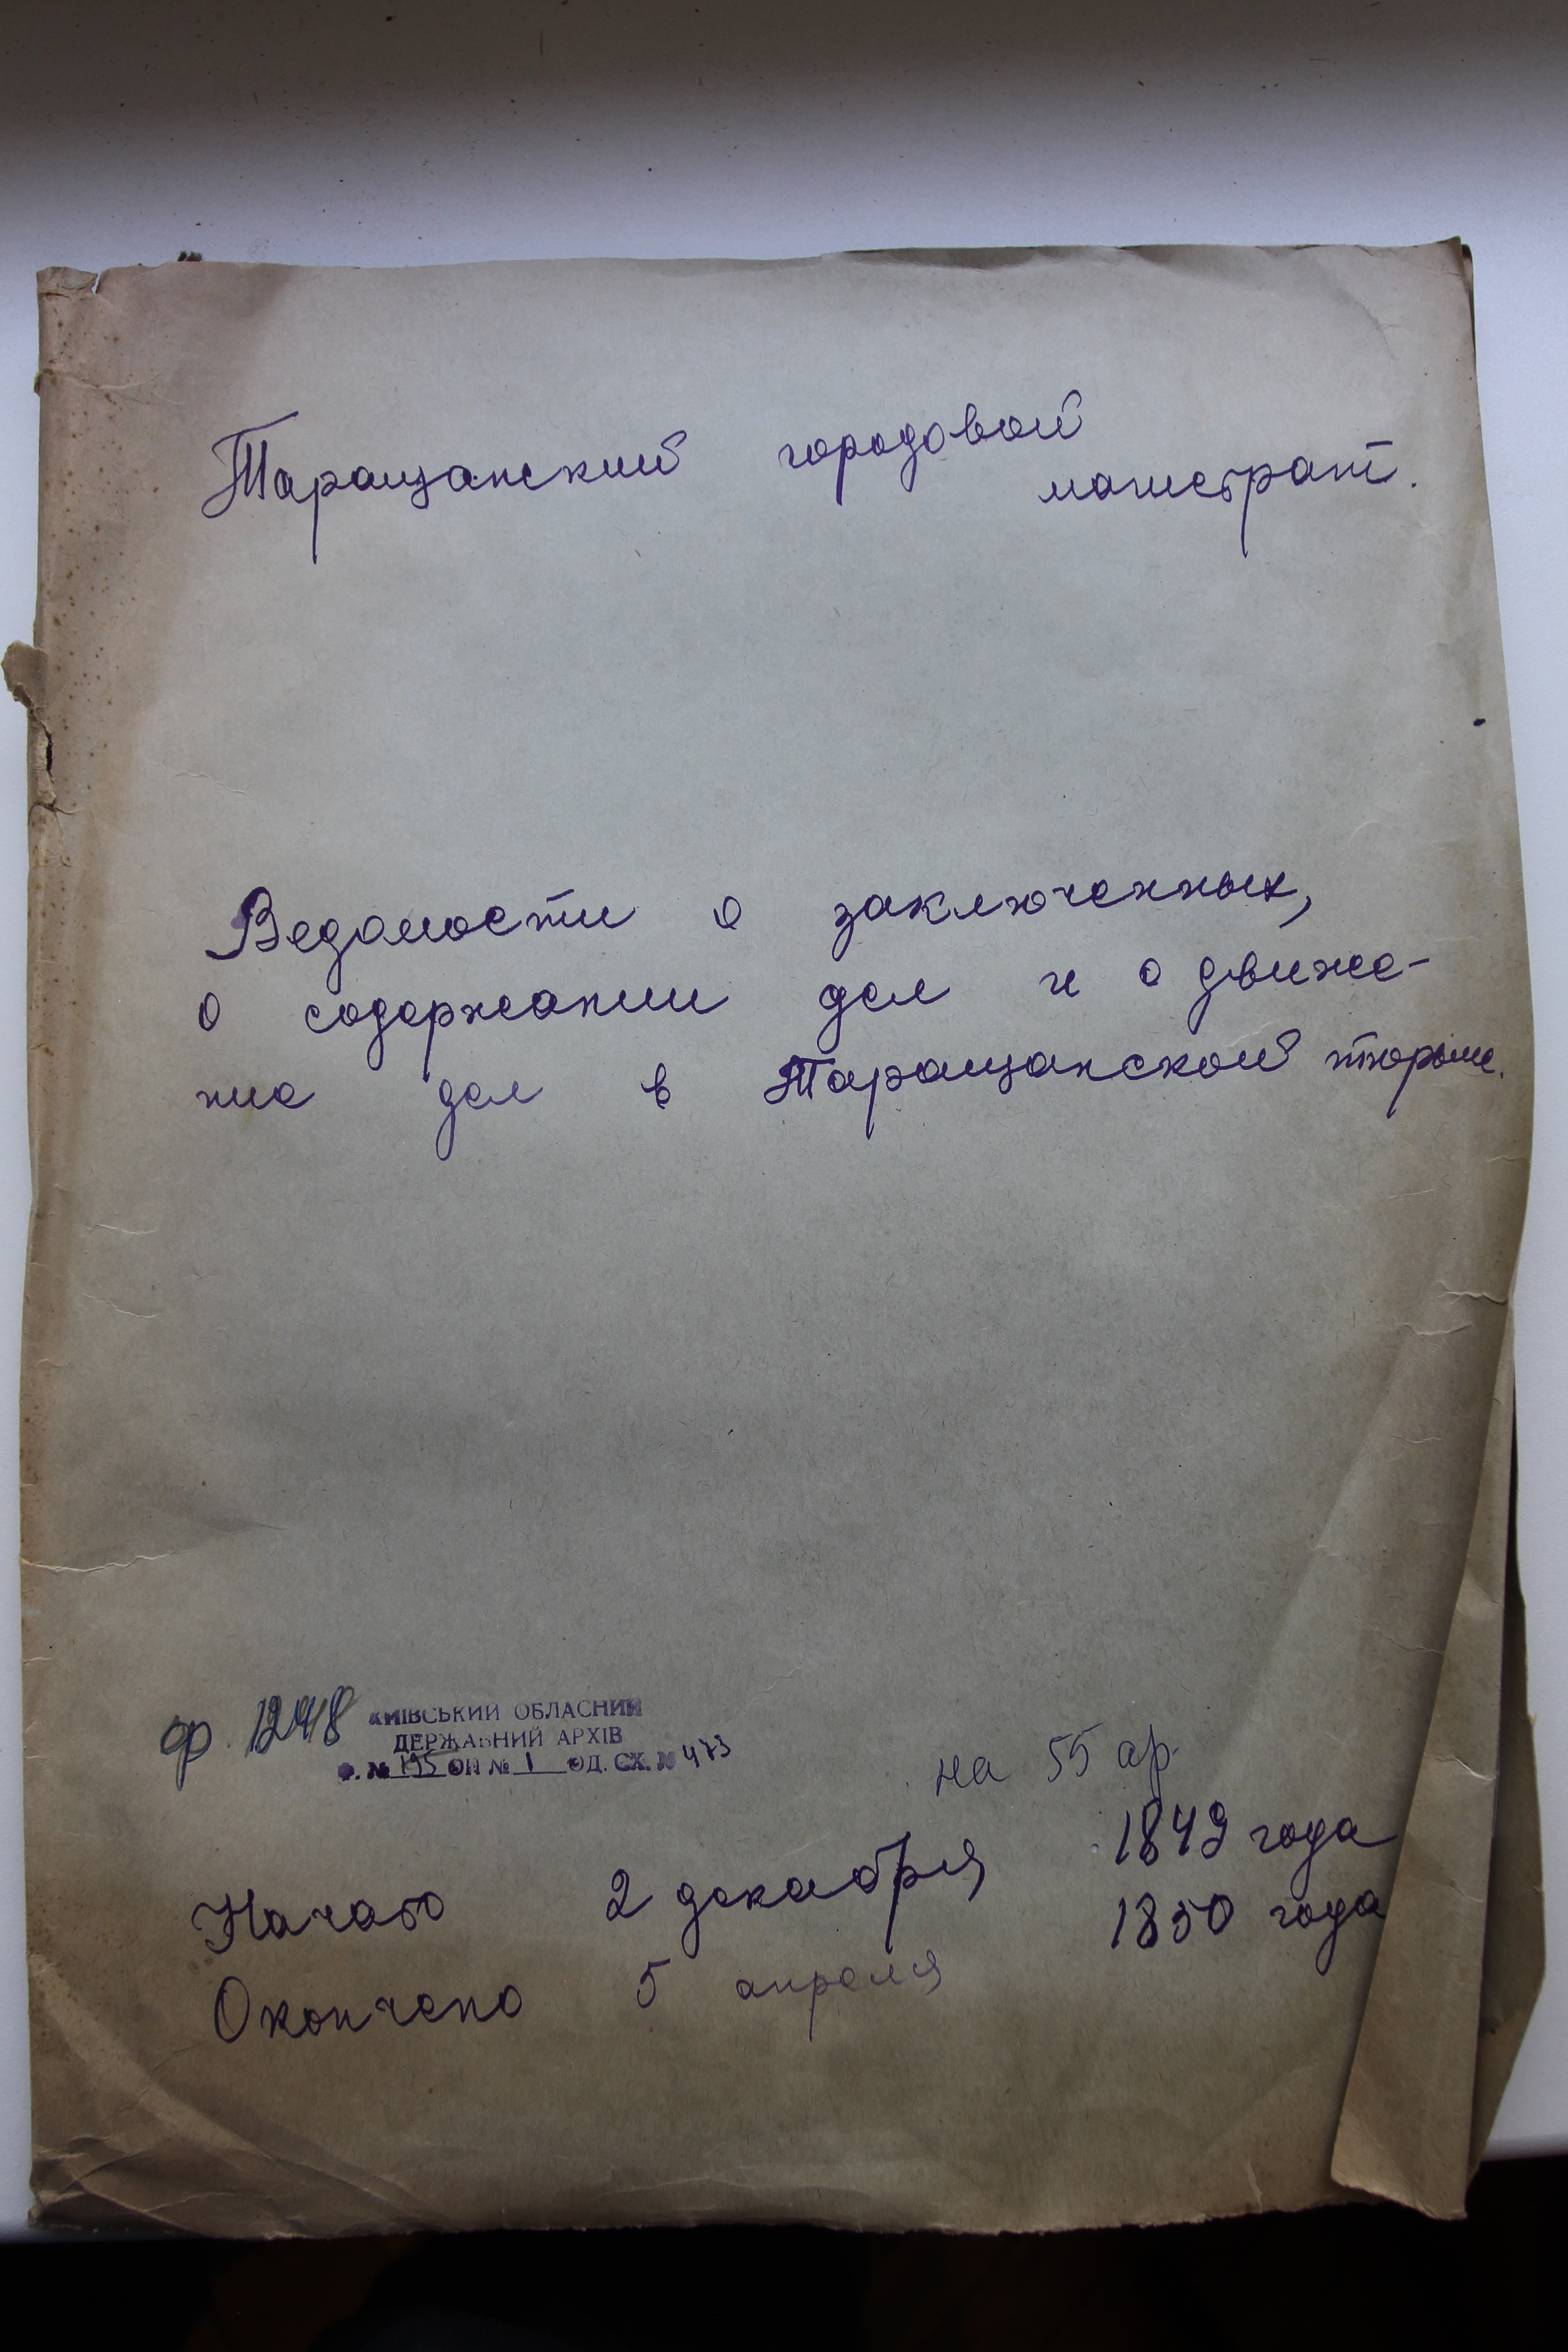 Таращанский городовой
магистрат.
Ведомости о заключенных,
о содержании дел и о движе-
ние дел в Таращанской тюрьме.
ф. 1248
КИЇВСЬКИЙ ОБЛАСНИЙ
ДЕРЖАВНИЙ АРХІВ
Ф. № 195 ОП № 1 ОД. СХ. № 473
на 55 ар.
Начато 2 декабря 1849 года
Окончено 5 апреля 1850 года